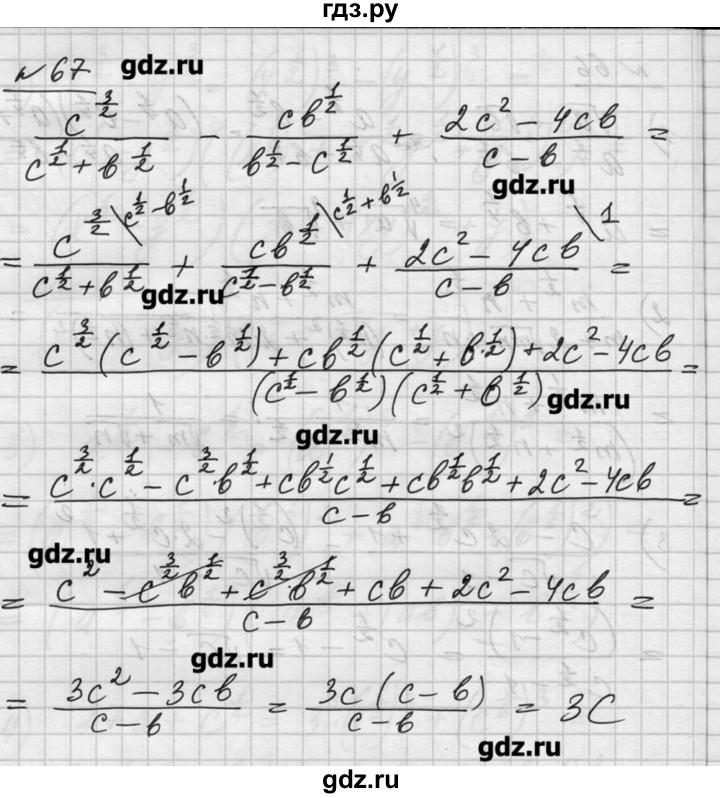 гдз.ру
№67 gdz.ru
c^{3/2}/(c^{1/2} + b^{1/2}) − cb^{1/2}/(b^{1/2} − c^{1/2}) + (2c² − 4cb)/(c − b) =
gdz.ru
= c^{3/2}\c^{1/2} − b^{1/2}/(c^{1/2} + b^{1/2}) + cb^{1/2}\c^{1/2} + b^{1/2}/(c^{1/2} − b^{1/2}) + (2c² − 4cb)\1/(c − b) =
gdz.ru
= (c^{3/2}(c^{1/2} − b^{1/2}) + cb^{1/2}(c^{1/2} + b^{1/2}) + 2c² − 4cb)/((c^{1/2} − b^{1/2})(c^{1/2} + b^{1/2})) =
gdz.ru
gdz.ru
= (c^{3/2} · c^{1/2} − c^{3/2} · b^{1/2} + cb^{1/2}c^{1/2} + cb^{1/2}b^{1/2} + 2c² − 4cb)/(c − b) =
gdz.ru
= (c² − c^{3/2}b^{1/2} + c^{3/2} · b^{1/2} + cb + 2c² − 4cb)/(c − b) =
gdz.ru
= (3c² − 3cb)/(c − b) = 3c(c − b)/(c − b) = 3c
gdz.ru
gdz.ru